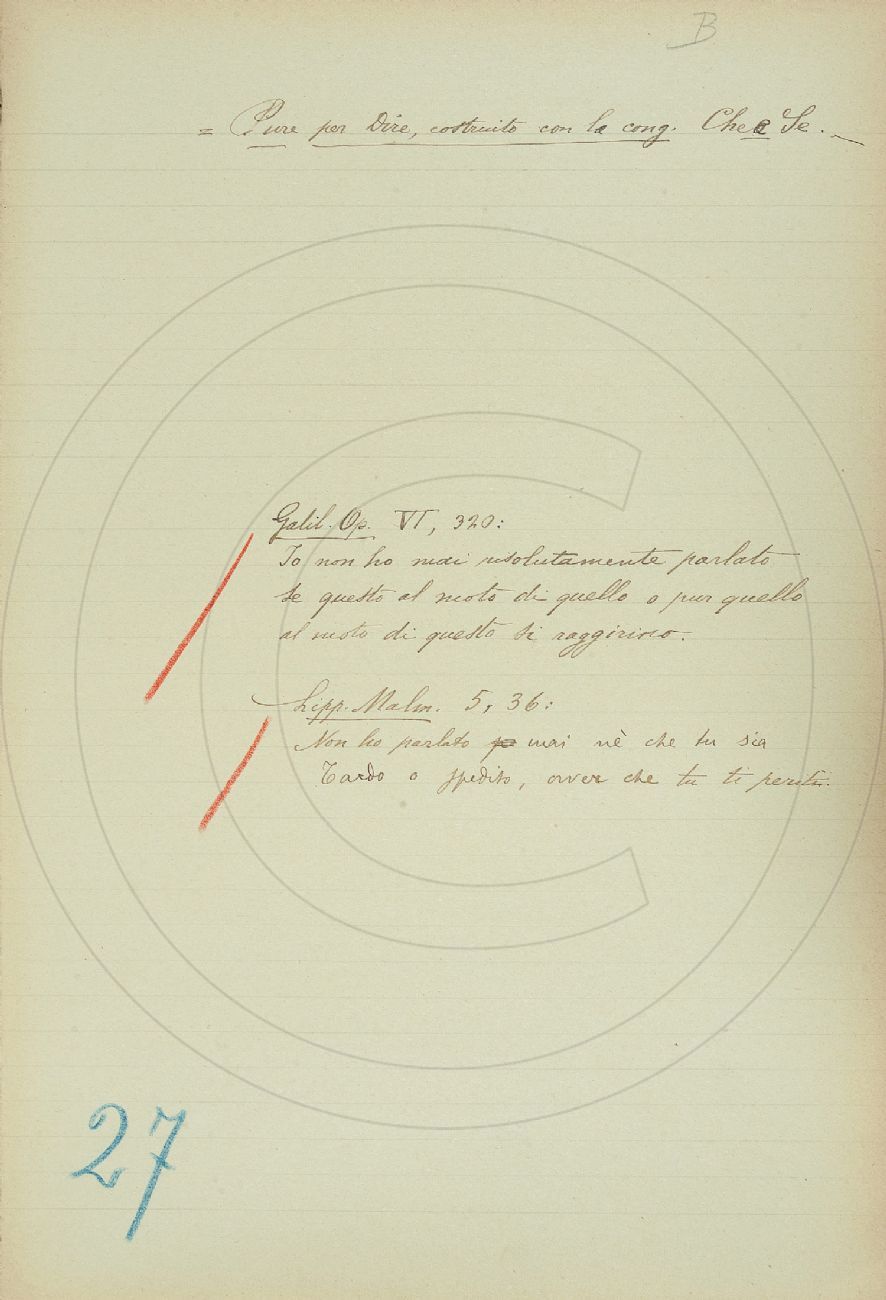 B
= Pure per Dire, costruito con le cong. Che e Se. —
Galil. Op. VI, 320:
Io non ho mai risolutamente parlato
se questo al moto di quello o pur quello
al moto di questo si
Lipp. Malm. 5, 36:
Non ho parlato mai nè che tu sia
Tardo o spedito, ovver che tu ti
27